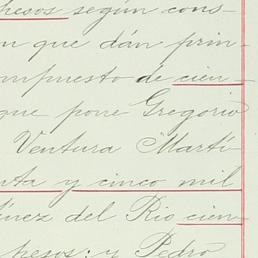 pesos según cons-
n que dán prin-
mpuesto de cien-
que pone Gregorio
Ventura Martí-
nta y cinco mil
tínez del Rio cien-
pesos; y Pedro